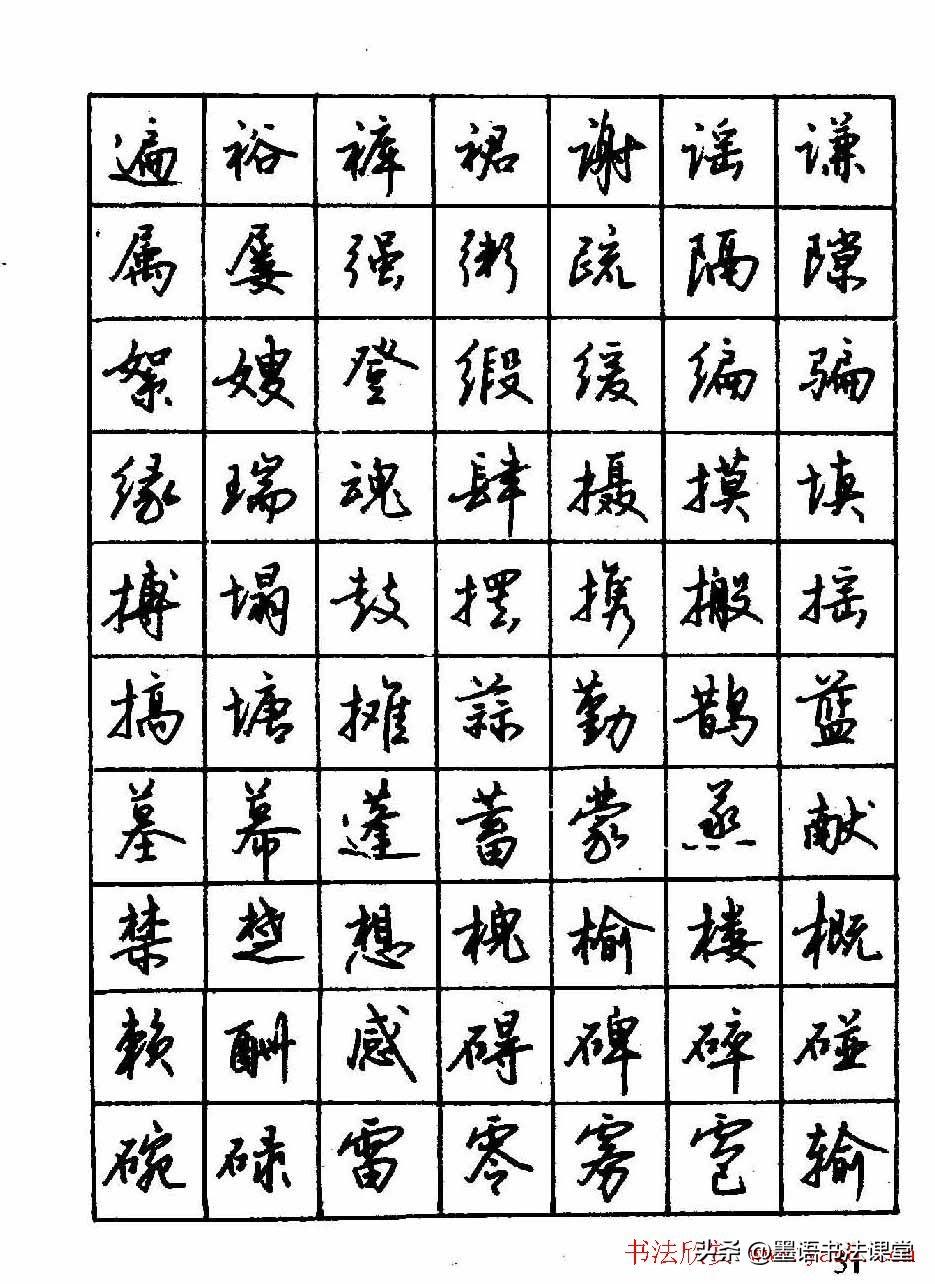 遍裕裤裙谢谣谦
属屡强粥疏隔隙
絮嫂登缎缓编骗
缘瑞魂肆摄摸填
搏塌鼓摆携搬摇
搞塘摊蒜勤鹊蓝
墓幕蓬蓄蒙蒸献
禁楚想槐榆楼概
赖酬感碍碑碎碰
碗碌雷零雾雹输
书法欣赏
头条 @墨语书法课堂
31